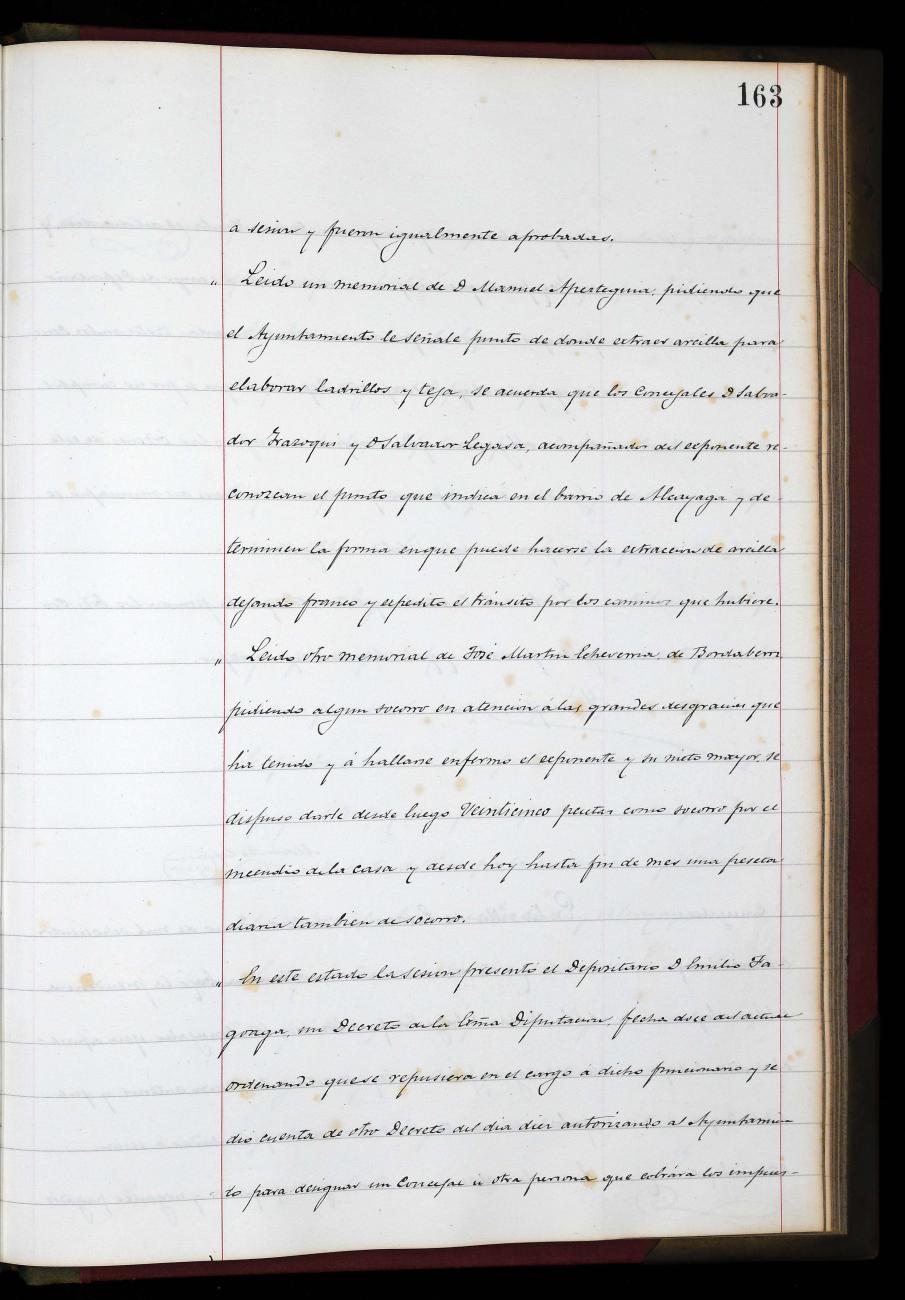 163
a sesion y fueron igualmente aprobadas.
" Leido un memorial de D Manuel Apesteguia, pidiendo que
el Ayuntamiento le señale punto de donde extraer arcilla para
elaborar ladrillos y teja, se acuerda que los Concejales D Salva-
dor Irazoqui y D Salvador Legasa, acompañados del exponente re-
conozcan el punto que indica en el barrio de Alcayaga y de-
terminen la forma en que puede hacerse la extraccion de arcilla
dejando franco y expedito el tránsito por los caminos que hubiere.
" Leido otro memorial de José Martin Echeverria, de Bordaberri
pidiendo algun socorro en atencion á las grandes desgracias que
ha tenido y á hallarse enfermo el exponente y su nieto mayor, se
dispuso darle desde luego Veinticinco pesetas como socorro por el
incendio de la casa y desde hoy hasta fin de mes una peseta
diaria tambien de socorro.
" En este estado la sesion presentó el Depositario D Emilio Fa-
goaga, un Decreto de la Excma Diputacion, fecha doce del actual
ordenando que se repusiera en el cargo á dicho funcionario y se
dió cuenta de otro Decreto del dia diez autorizando al Ayuntamien
to para designar un Concejal ú otra persona que cobrára los impues-